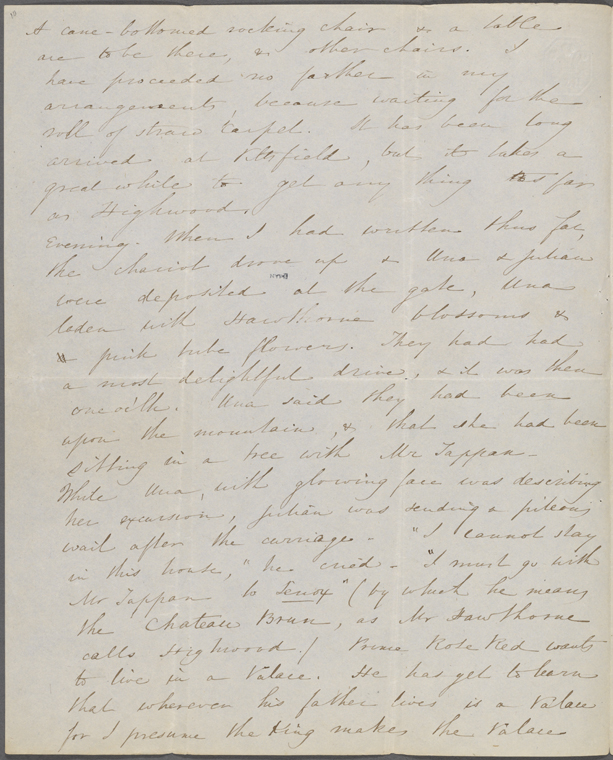 10
A cane-bottomed rocking chair & a table
are to be there, & other chairs. I
have proceeded no farther in my
arrangements because waiting for the
roll of straw Carpet. It has been long
arrived at Pittsfield, but it takes a
great while to get any thing as far
as Highwood.
Evening. When I had written thus far,
the chariot drove up & Una & Julian
were deposited at the gate, Una
laden with Hawthorne blossoms &
& pink tube flowers. They had had
a most delightful drive, & it was then
one o'clk. Una said they had been
upon the mountain, & that she had been
sitting in a tree with Mr Tappan —
While Una, with glowing face was describing
her excursion, Julian was sending a piteous
wail after the carriage — "I cannot stay
in this house," he cried — "I must go with
Mr Tappan to Lenox" (by which he means
the Chateau Brun, as Mr Hawthorne
calls Highwood.) Prince Rose Red wants
to live in a Palace. He has yet to learn
that wherever his father lives is a Palace
for I presume the King makes the Palace